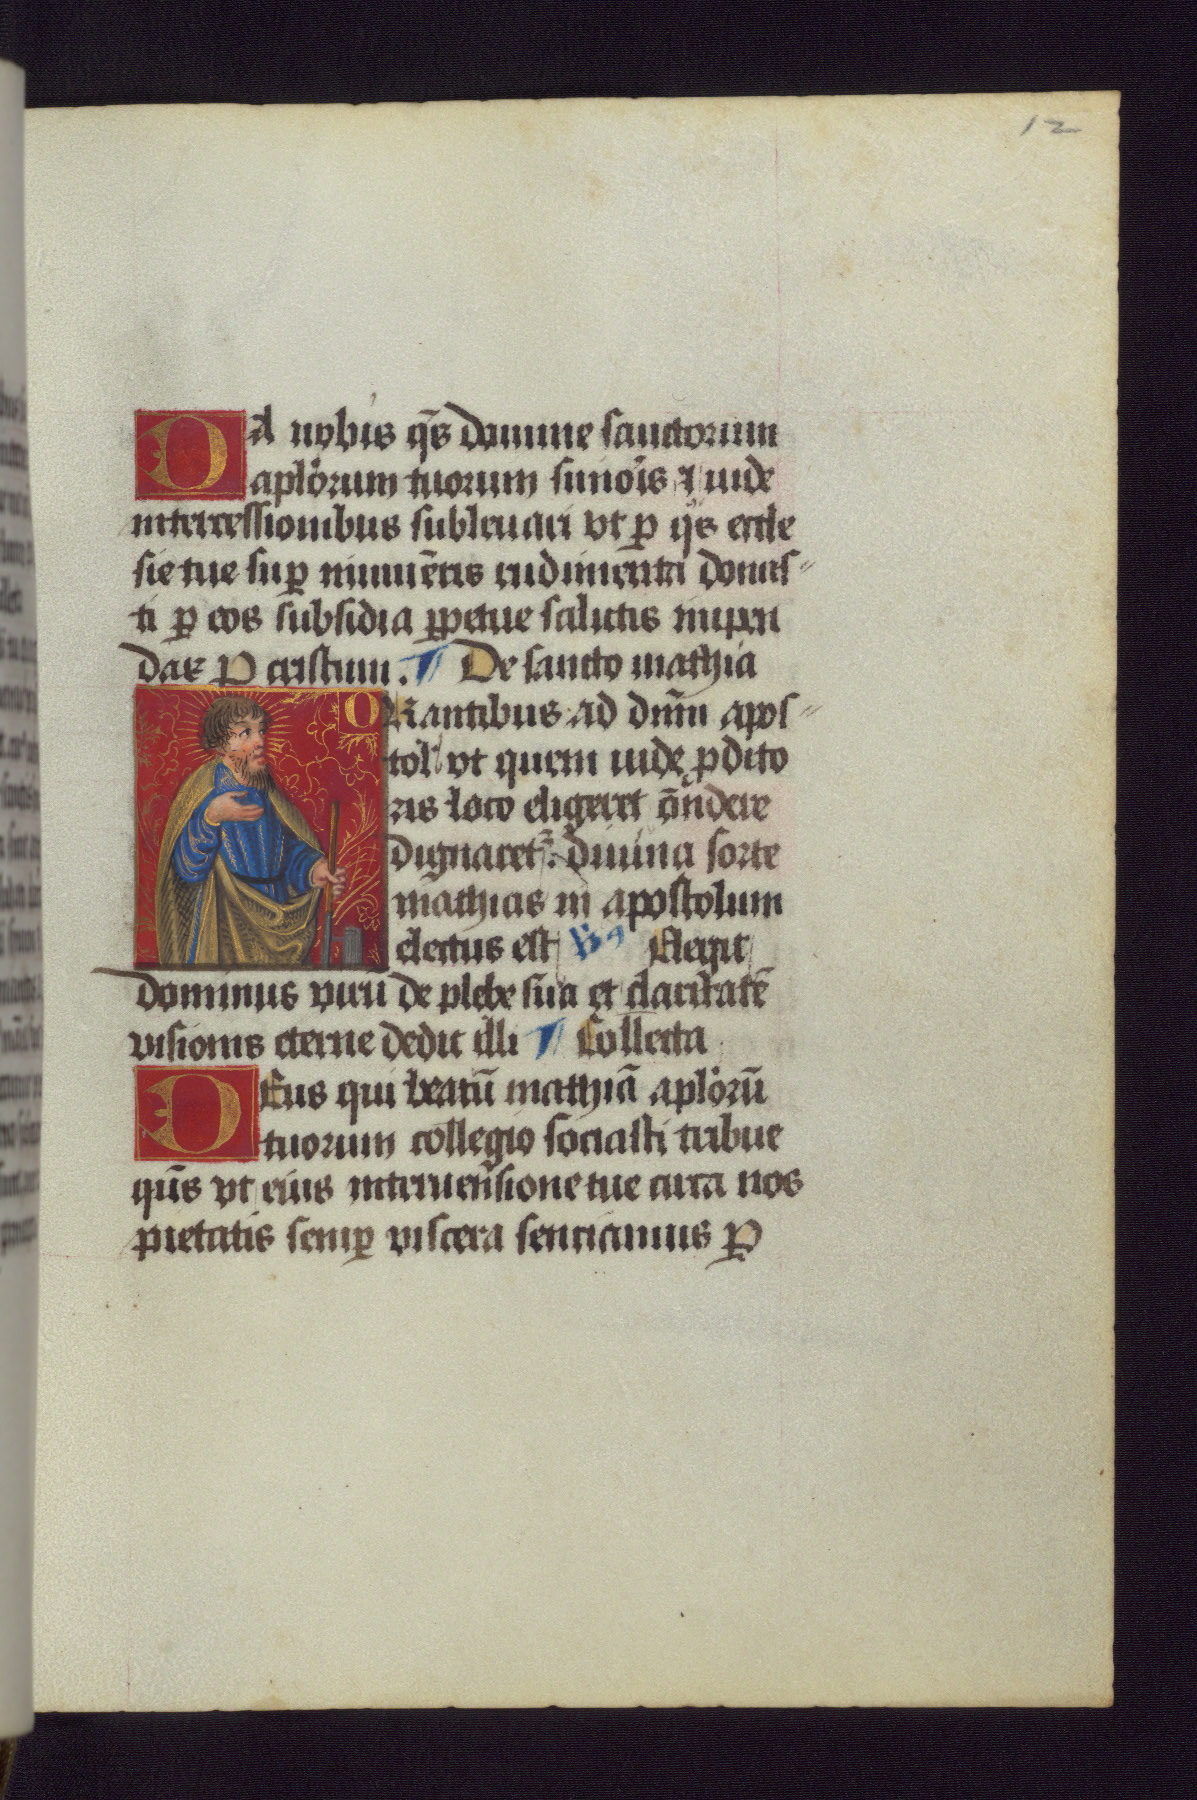 12
DA nobis q̄s domine sanctorum
aplōrum tuorum simōis ⁊ iude
intercessionibus subleuari vt p̲ q̊s eccle
sie tue sup̲ munīeris rudimenta donas〃
ti p̲ eos subsidia p̲petue salutis impen
dat P cristum. ¶ De sancto mathia
ORantibus ad dn̄m apos〃
tol' vt quem iude p̲dito
ris loco eligeret ōndere
dignaret᷑: diuina sorte
mathias in apostolum
electus est V̷s Elegit
dominus virū de plebe sua et claritatē
visionis eterne dedit illi ¶ Collecta
DEus qui beatū mathiā aplōrū
tuorum collegio sociasti tribue
qūs vt eius interuēsione tue circa nos
pietatis semp̲ viscera senciamus P